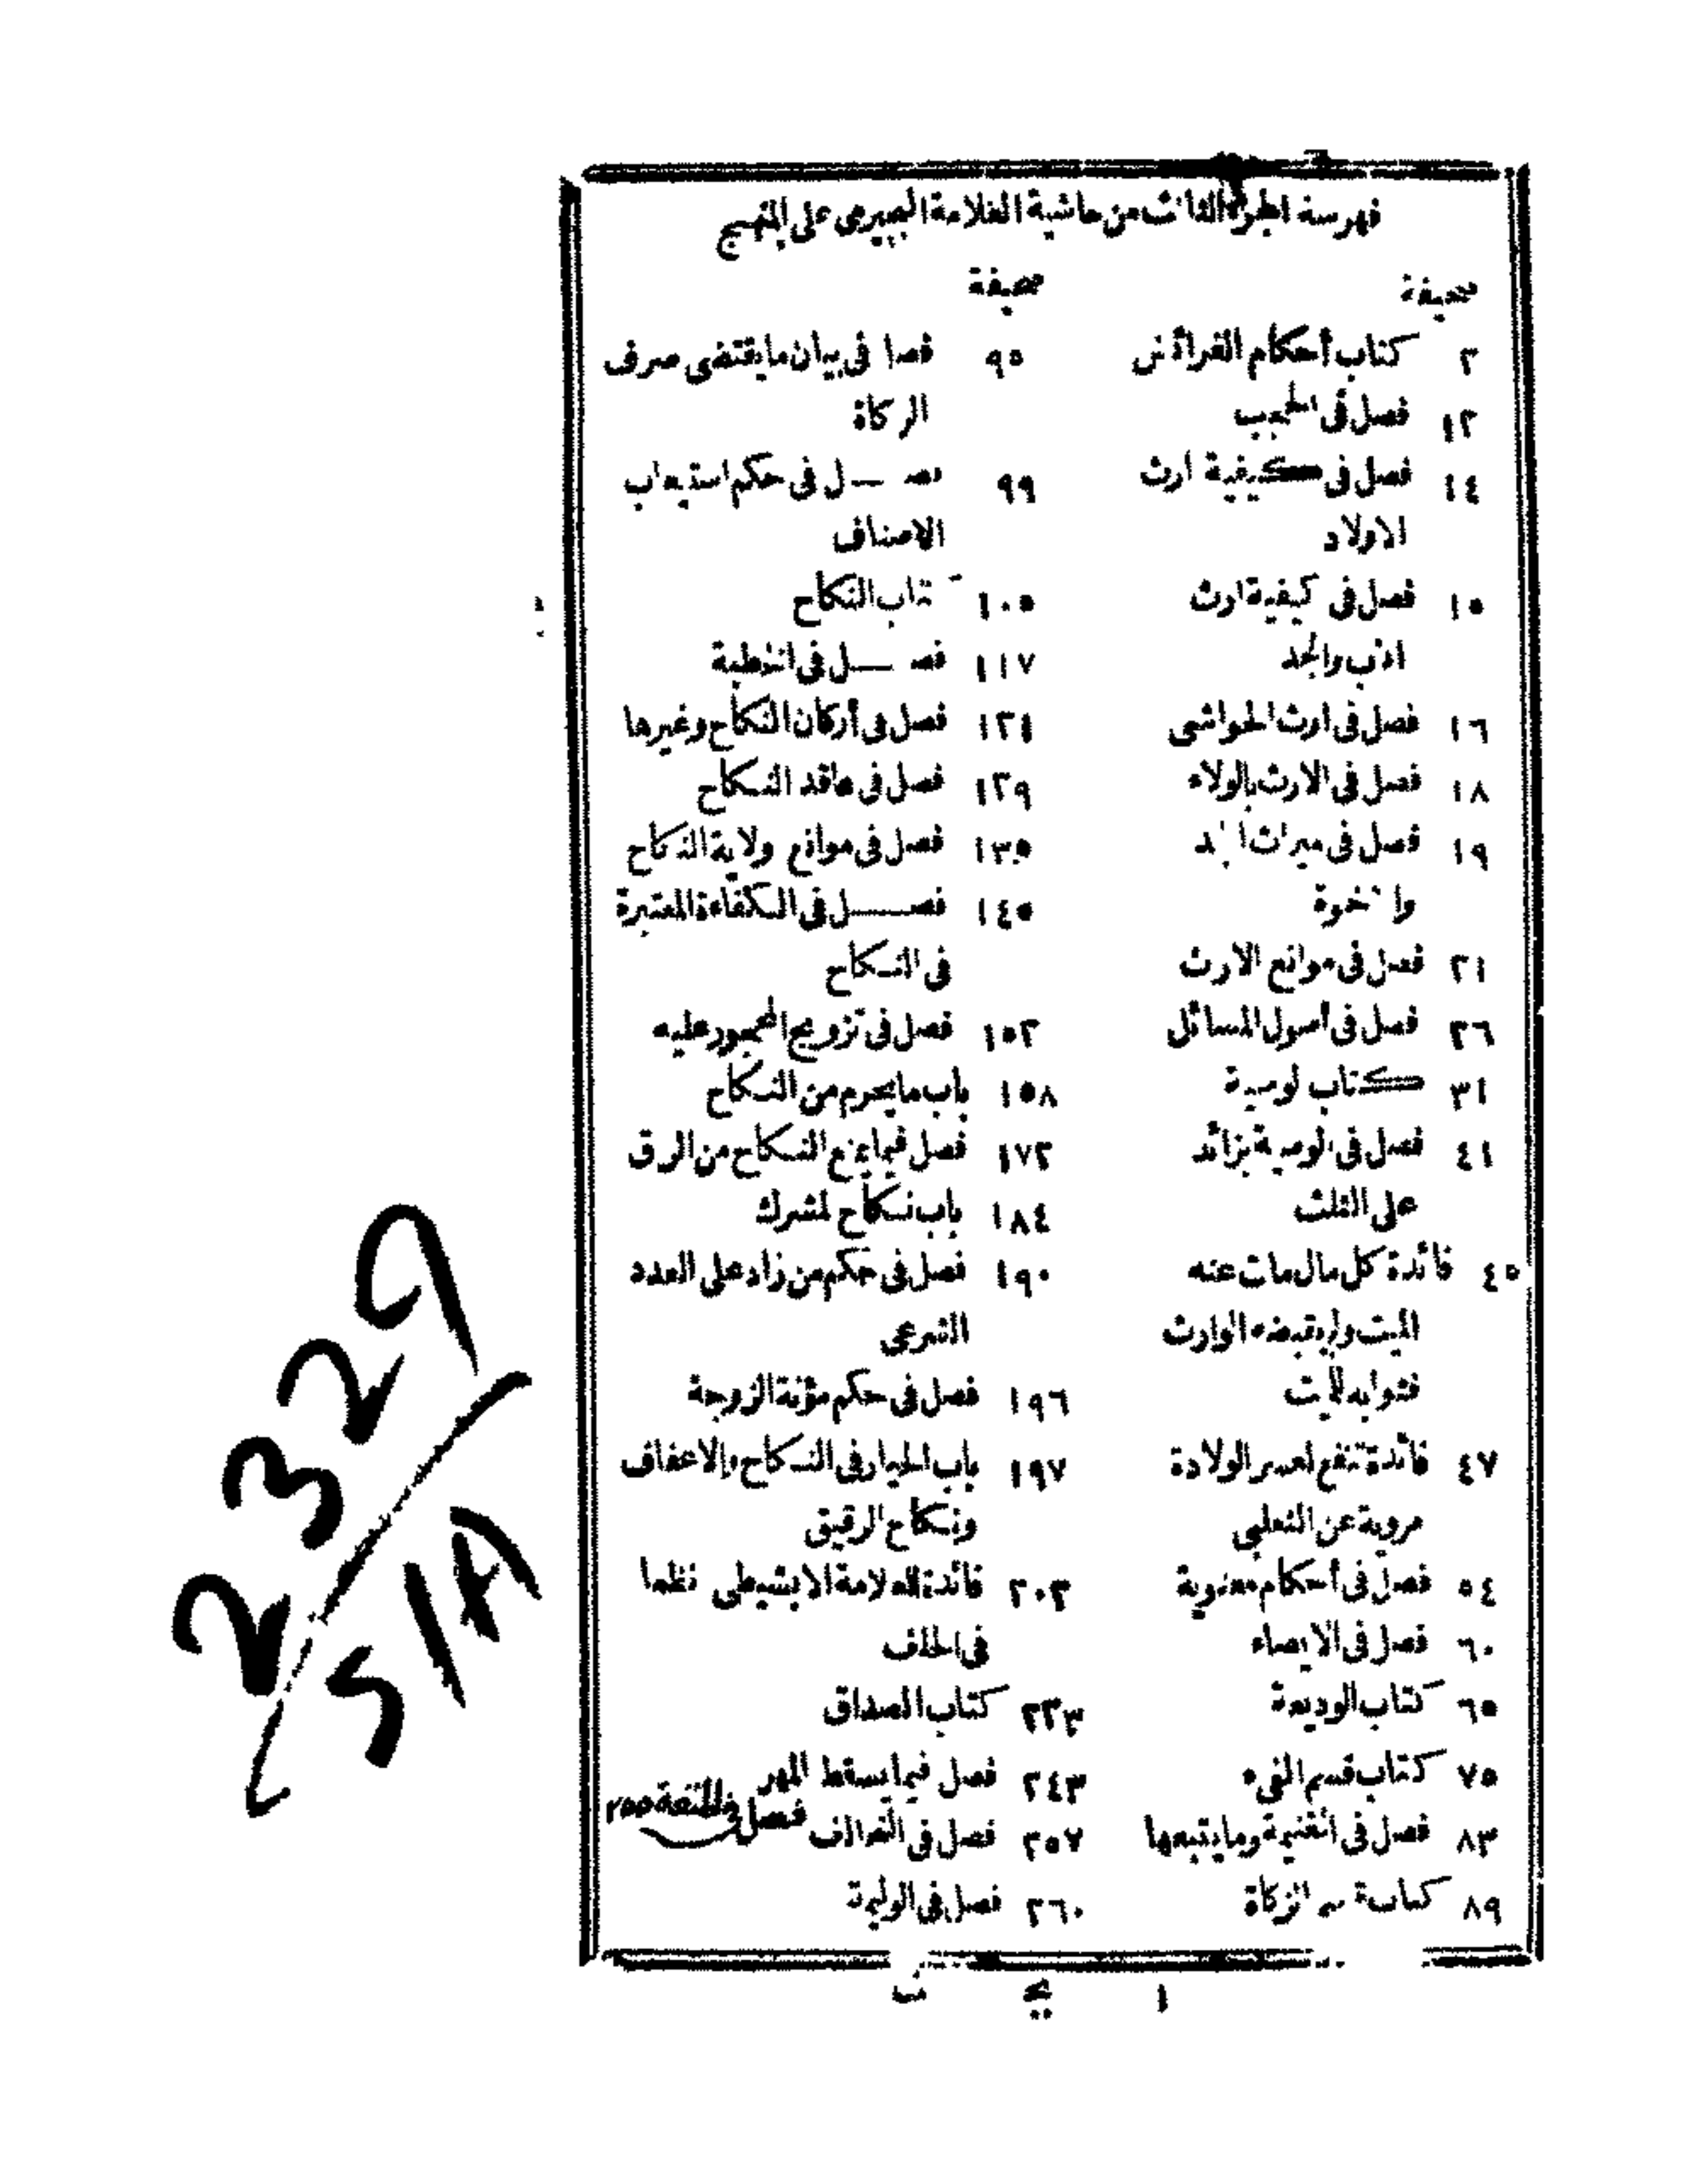 فهرسة الجزء الثالث من حاشية العلامة البجيرمى على المنهج
صحيفة
٢ كتاب أحكام الفرائض
١٢ فصل فى الحجب
١٤ فصل فى كيفية ارث
الاولاد
١٥ فصل فى كيفية ارث
الاب والجد
١٦ فصل فى ارث الحواشى
١٨ فصل فى الارث بالولاء
١٩ فصل فى ميراث الجد
والاخوة
٢١ فصل فى موانع الارث
٢٦ فصل فى أصول المسائل
٣١ كتاب الوصية
٤١ فصل فى الوصية بزائد
على الثلث
٤٥ فائدة كل مال مات عنه
الميت ولم يقبضه الوارث
فثوابه للميت
٤٧ فائدة تنفع لعسر الولادة
مروية عن الثعلبى
٥٤ فصل فى أحكام معنوية
٦٠ فصل فى الايصاء
٦٥ كتاب الوديعة
٧٥ كتاب قسم الفىء
٨٣ فصل فى الغنيمة وما يتبعها
٨٩ كتاب قسم الزكاة
صحيفة
٩٥ فصل فى بيان ما يقتضى صرف
الزكاة
٩٩ فصل فى حكم استيعاب
الاصناف
١٠٥ كتاب النكاح
١١٧ فصل فى الخطبة
١٢٤ فصل فى أركان النكاح وغيرها
١٢٩ فصل فى عاقد النكاح
١٣٥ فصل فى موانع ولاية النكاح
١٤٥ فصل فى الكفاءة المعتبرة
فى النكاح
١٥٢ فصل فى تزويج المحجور عليه
١٥٨ باب ما يحرم من النكاح
١٧٢ فصل فيما يمنع النكاح من الرق
١٨٤ باب نكاح المشرك
١٩٠ فصل فى حكم من زاد على العدد
الشرعى
١٩٦ فصل فى حكم مؤنة الزوجة
١٩٧ باب الخيار فى النكاح والاعفاف
ونكاح الرقيق
٢٠٣ فائدة للعلامة الابشيطى نظما
فى الخلف
٢٢٣ كتاب الصداق
٢٤٣ فصل فيما يسقط المهر
فصل فى المتعة ٢٥٥
٢٥٧ فصل فى التحالف
٢٦٠ فصل فى الوليمة
١ بج ث
2329
S/A